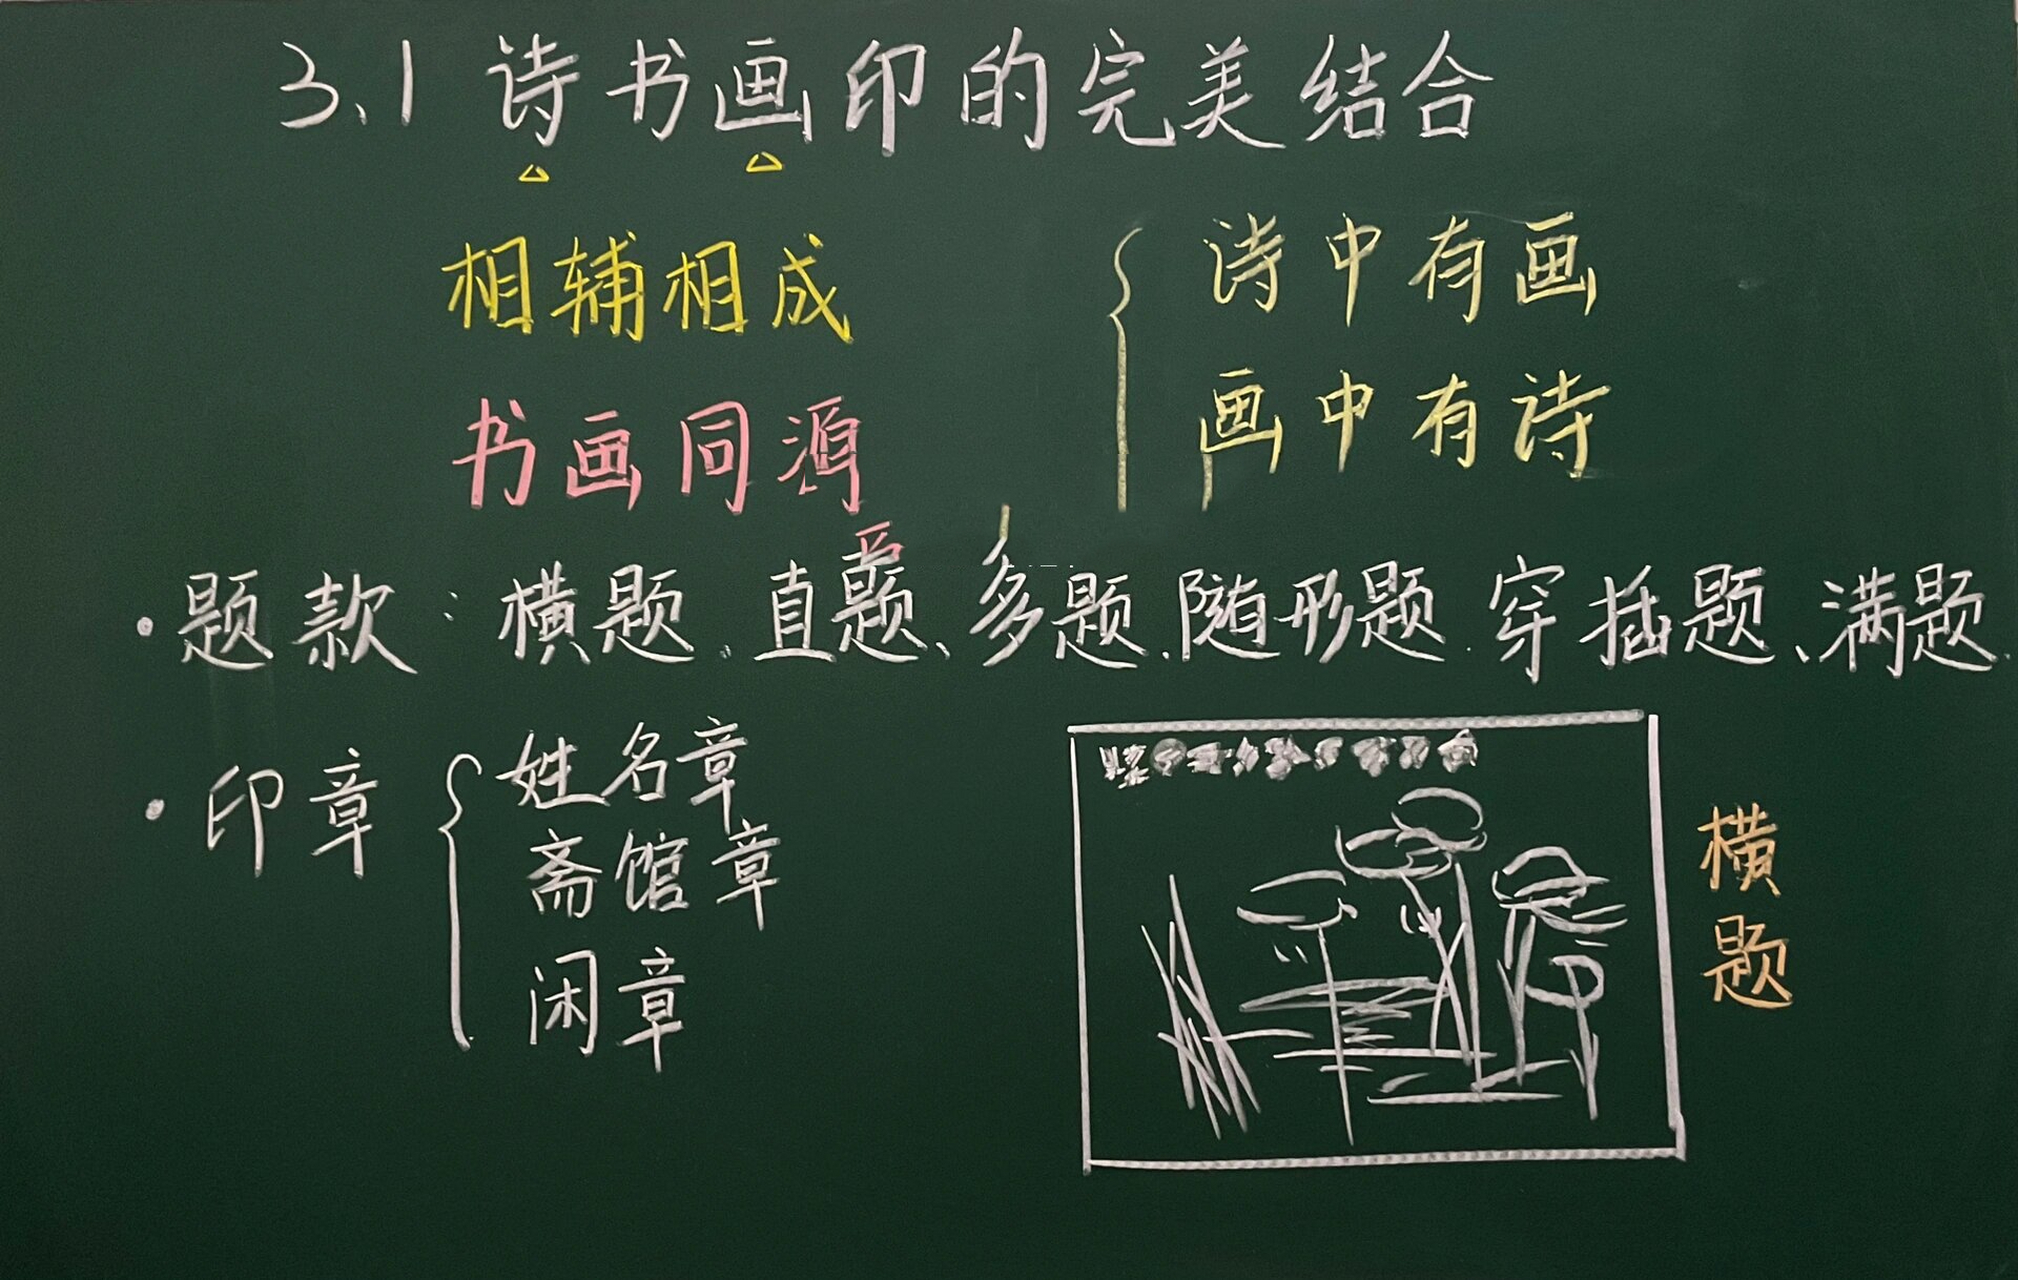 3.1 诗书画印的完美结合
相辅相成
诗中有画
画中有诗
书画同源
·题款：横题、直题、多题、随形题、穿插题、满题
·印章
姓名章
斋馆章
闲章
横题